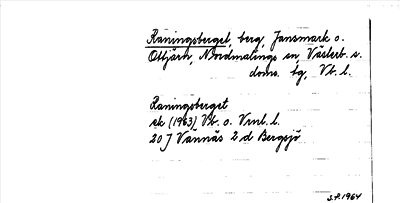 Raningsberget, berg, Jansmark o.
Ottjärn, Nordmalings sn, Västerb. s.
doms. bg, Vb. l.
Raningsberget
ek (1963) Vb. o. Vrnl. l.
20 J Vännäs 2 d Bergsjö
S.P. 1964